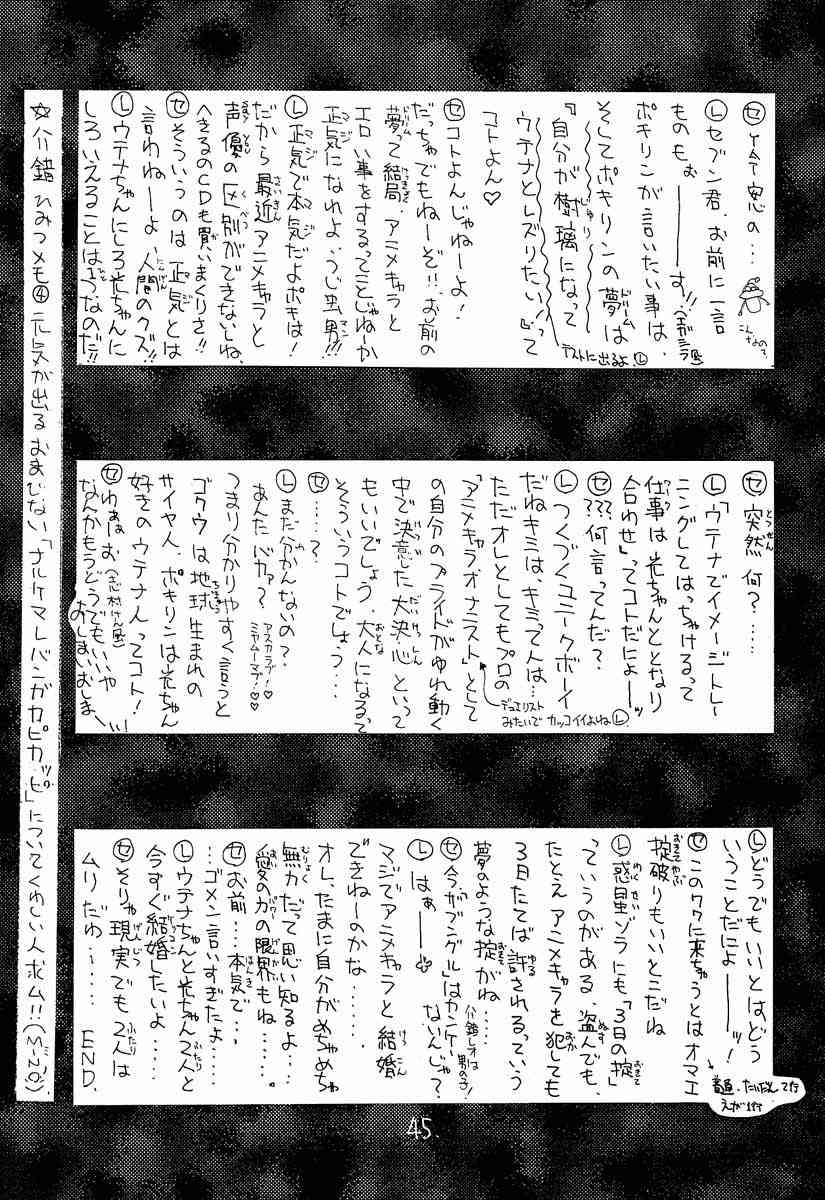 ㋝ ﾔな予感の…
こんなの？
Ⓛ セブン君、お前に一言
ものもぉーーーす!!
ポキリンが言いたい事は、
そしてポキリンの夢は
『自分が樹璃になって
ウテナとレズりたい！』って
テストに出るよ。Ⓛ
コトよん♡
㋝ コトよんじゃねーよ！
だっちゃでもねーぞ!!お前の
夢って結局、アニメキャラと
エロい事をするってことじゃねーか
正気になれよ、うじ虫男!!!
Ⓛ 正気で本気だよポキは！
だから最近アニメキャラと
声優の区別ができないしね、
へきるのCDも買いまくりさ!!
㋝ そういうのは正気とは
言わねーよ、人間のクズ!!
Ⓛ ウテナちゃんにしろ光ちゃんに
しろいえることは1つなのだ!!
㋝ 突然何？……
Ⓛ 「ウテナでイメージトレー
ニングしてはっちゃけるって
仕事は光ちゃんととなり
合わせ」ってコトだにょーーッ
㋝ ???何言ってんだ？
Ⓛ つくづくユニークボーイ
だねキミは、キミって人は…
ただオレとしてもプロの
「アニメキャラオナニスト」として
デュエリスト
みたいで カッコイイよねⓁ
の自分のプライドがゆれ動く
中で決意した大決心といって
もいいでしょう、大人になるって
そういうコトでしょう…
㋝ ……？
Ⓛ まだ分かんないの？
あんたバカァ？
アスカラブ！♡
ミヤムーマブ！♡♡
つまり分かりやすく言うと
ゴクウは地球生まれの
サイヤ人、ポキリンは光ちゃん
好きのウテナ人ってコト！
㋝ わぁぁお(志村けん風)
なんかもうどうでもいいや
おしまいおしま
Ⓛ どうでもいいとはどう
いうことだによーーッ！
㋝ このワクに来ちゃうとはオマエ
掟破りもいいとこだね
Ⓛ 惑星ゾラにも「3日の掟」
っていうのがある、盗んでも、
たとえアニメキャラを犯しても
3日たてば許されるっていう
夢のような掟がね…
㋝ 今「ザブングル」はカンケー
ないんじゃ？
介錯レオは
男の子！
Ⓛ はぁーー
マジでアニメキャラと結婚
できねーのかな……
オレ、たまに自分がめちゃめちゃ
無力だって思い知るよ…
愛の力の限界もね…
㋝ お前…本気で…
…ゴメン言いすぎたよ…
Ⓛ ウテナちゃんと光ちゃん2人と
今すぐ結婚したいよ…
㋝ そりゃ現実でも2人は
ムリだゅ……… END.
☆介錯ひみつメモ④ 元気が出るおまじない「ナルケマレバンガカピカッピ」についてくわしい人求ム!!(M-ニノ)
45.